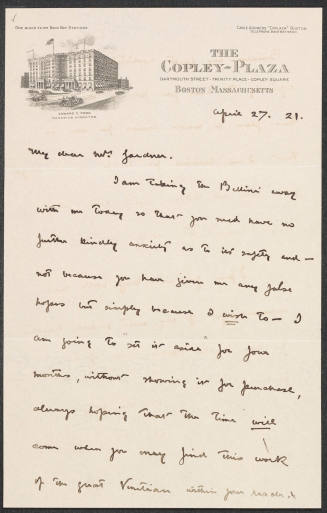 ONE BLOCK FROM BACK BAY STATIONS
CABLE ADDRESS "COPLAZA" BOSTON
TELEPHONE BACK BAY
THE
COPLEY-PLAZA
DARTMOUTH STREET - TRINITY PLACE - COPLEY SQUARE
BOSTON MASSACHUSETTS
EDWARD C. FOGG
MANAGING DIRECTOR
April 27. 21.
My dear Mrs. Gardner.
I am taking the Bellini away
with me today so that you need have no
further kindly anxiety as to its safety and —
not because you have given me any false
hopes but simply because I wish to — I
am going to "set it aside" for four
months, without showing it for purchase,
always hoping that the time will
come when you may find this work
of the great Venetian within your reach. &